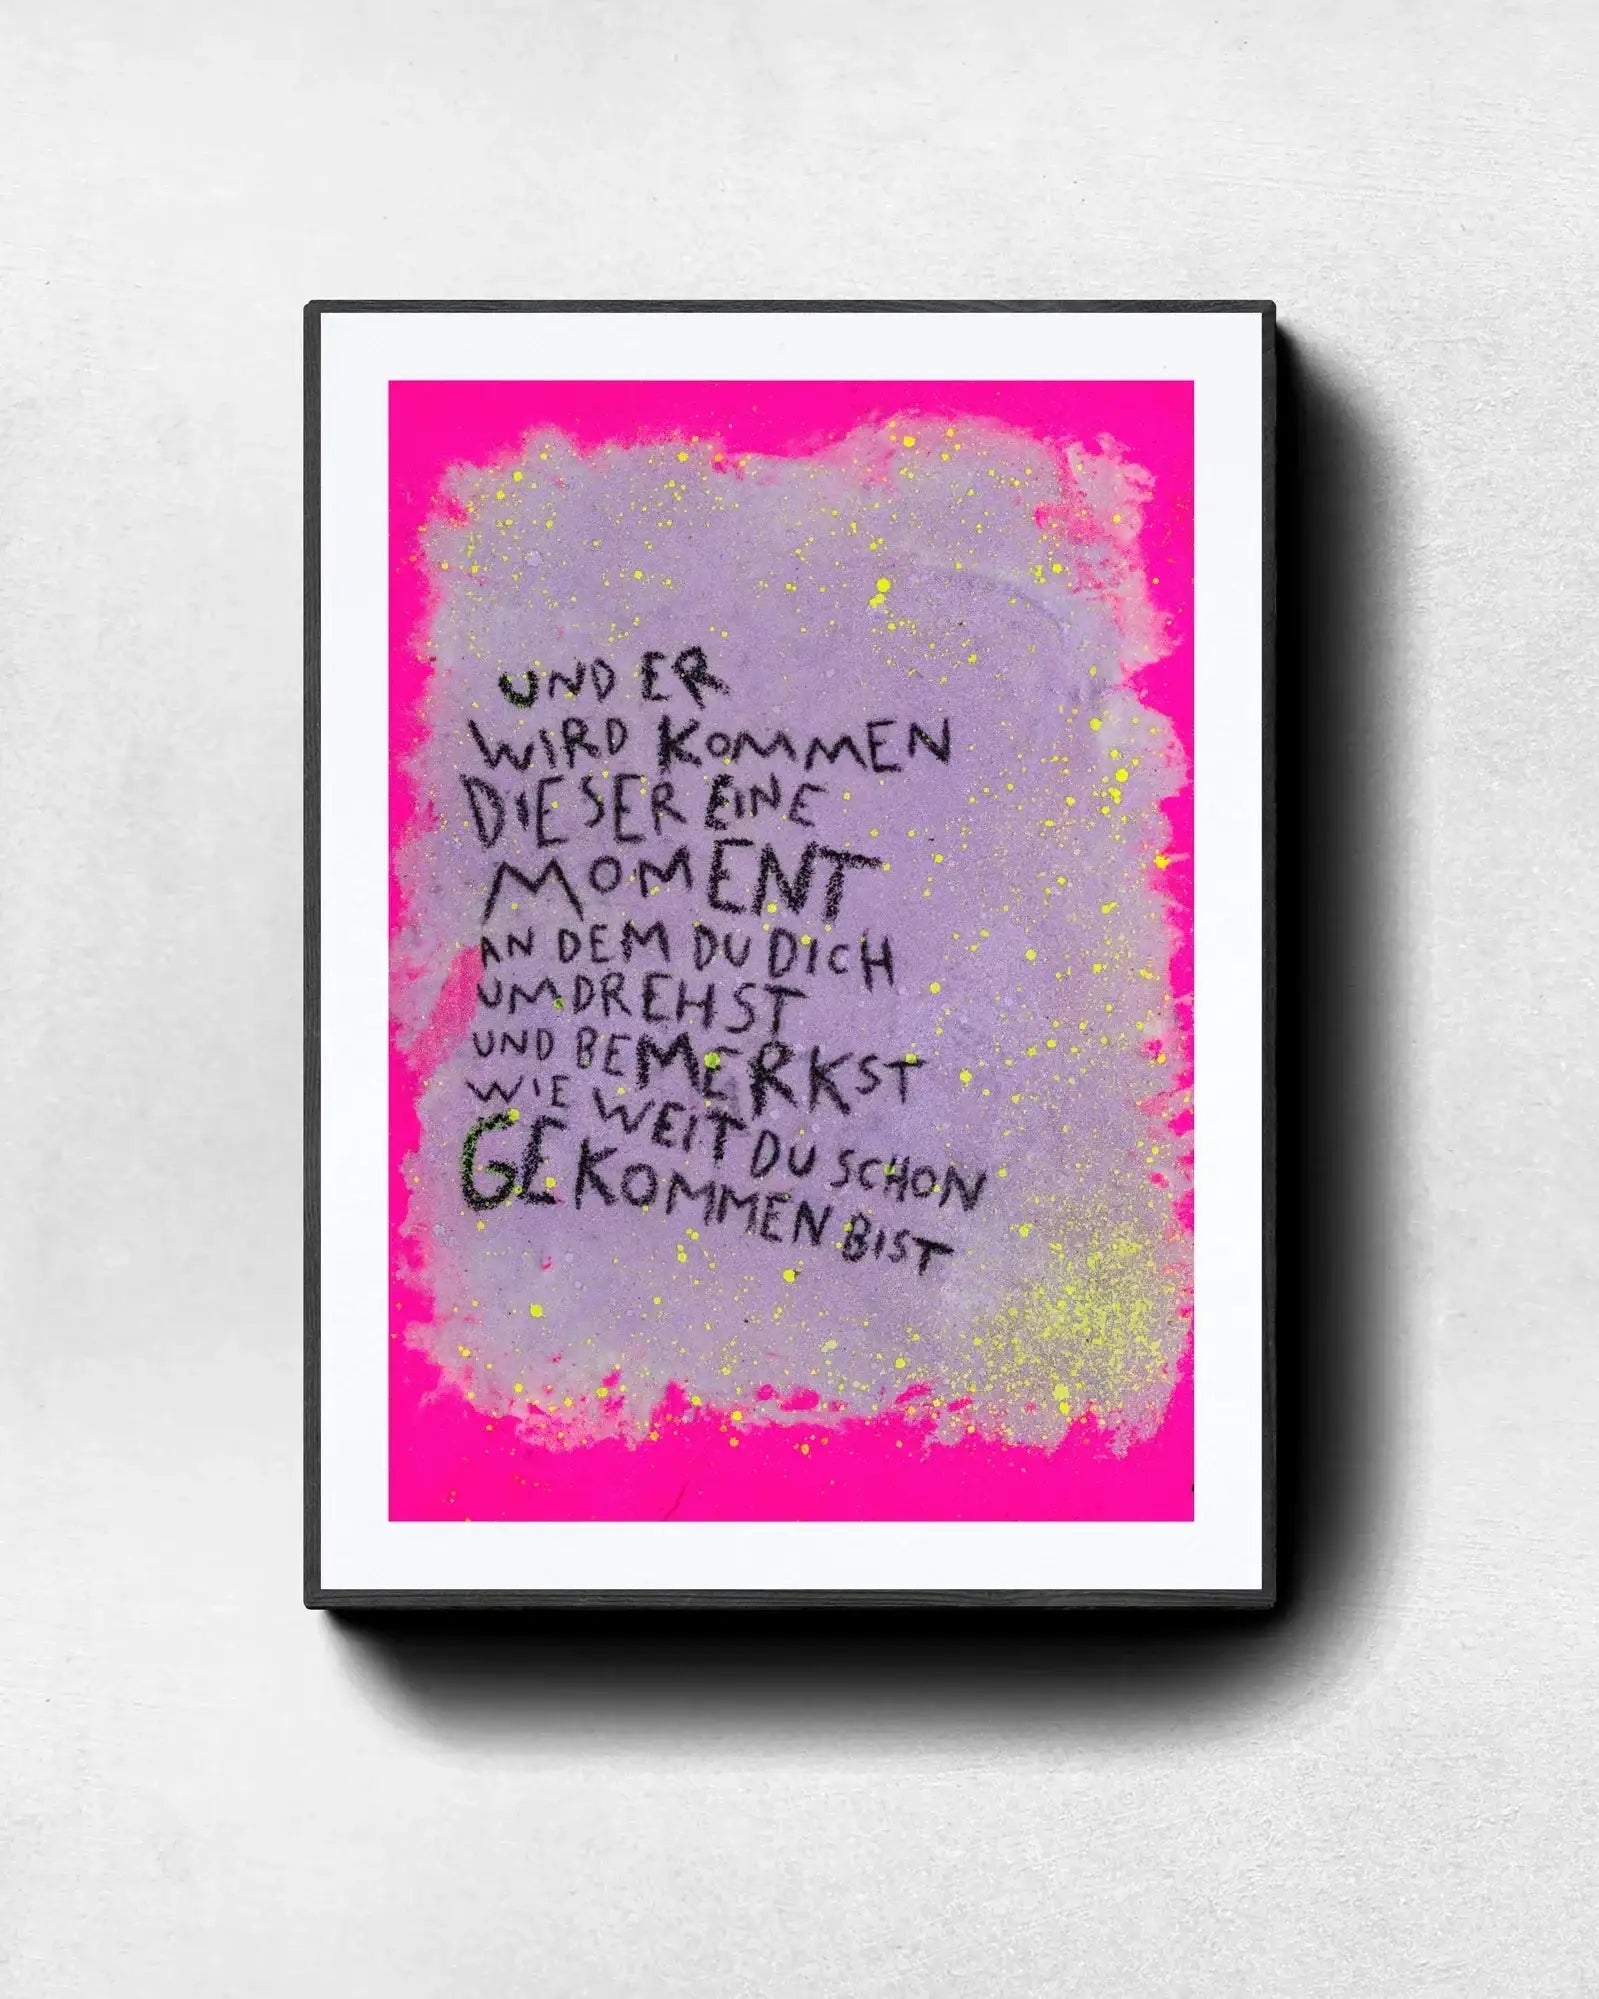 UND ER
WIRD KOMMEN
DIESER EINE
MOMENT
AN DEM DU DICH
UMDREHST
UND BEMERKST
WIE WEIT DU SCHON
GEKOMMEN BIST